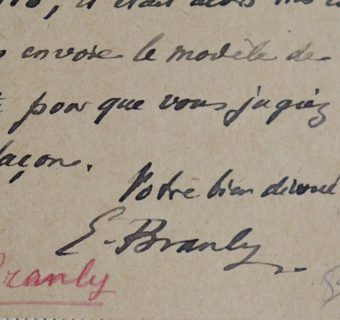 était alors
envoie le modèle de
pour que vous jugiez
façon.
Votre bien dévoué
E. Branly
Branly